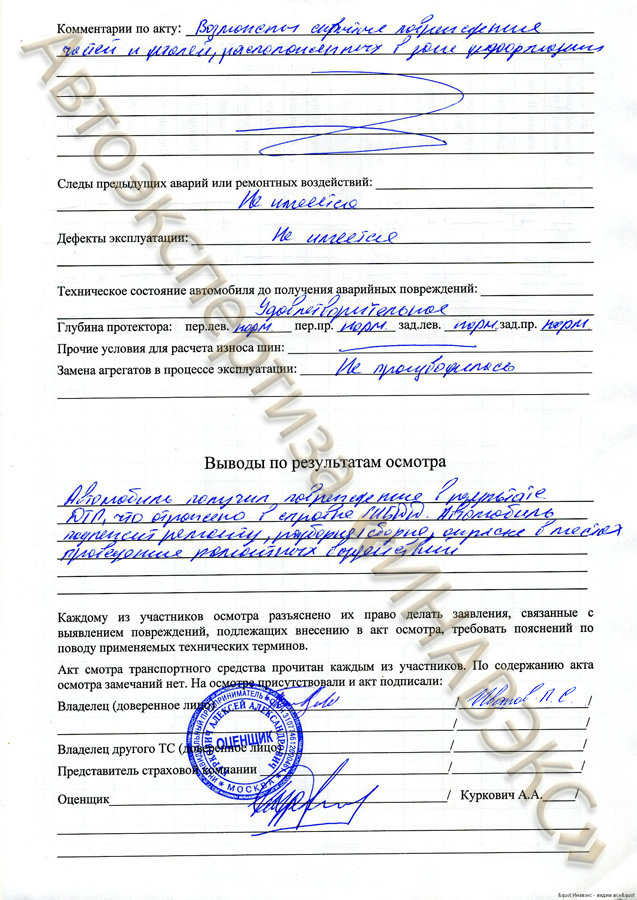 Комментарии по акту: Возможны скрытые повреждения
частей и деталей, расположенных в зоне деформации
Следы предыдущих аварий или ремонтных воздействий:
Не имеется
Дефекты эксплуатации: Не имеется
Техническое состояние автомобиля до получения аварийных повреждений:
Удовлетворительное
Глубина протектора: пер.лев. норм пер.пр. норм зад.лев. норм зад.пр. норм
Прочие условия для расчета износа шин:
Замена агрегатов в процессе эксплуатации: Не производилась
Выводы по результатам осмотра
Автомобиль получил повреждение в результате
ДТП, что отражено в справке ГИБДД. Автомобиль
подлежит ремонту, разборке/сборке, окраске в местах
проведения ремонтных воздействий
Каждому из участников осмотра разъяснено их право делать заявления, связанные с
выявлением повреждений, подлежащих внесению в акт осмотра, требовать пояснений по
поводу применяемых технических терминов.
Акт смотра транспортного средства прочитан каждым из участников. По содержанию акта
осмотра замечаний нет. На осмотре присутствовали и акт подписали:
Владелец (доверенное лицо) / /
/ /
Владелец другого ТС (доверенное лицо) / /
Представитель страховой компании / /
Оценщик / Куркович А.А. /
ИНДИВИДУАЛЬНЫЙ ПРЕДПРИНИМАТЕЛЬ
КУРКОВИЧ АЛЕКСЕЙ АЛЕКСАНДРОВИЧ
ОЦЕНЩИК
МОСКВА
Автоэкспертиза «ИНАВЭКС»
&quot;Инавэкс - видим все&quot;